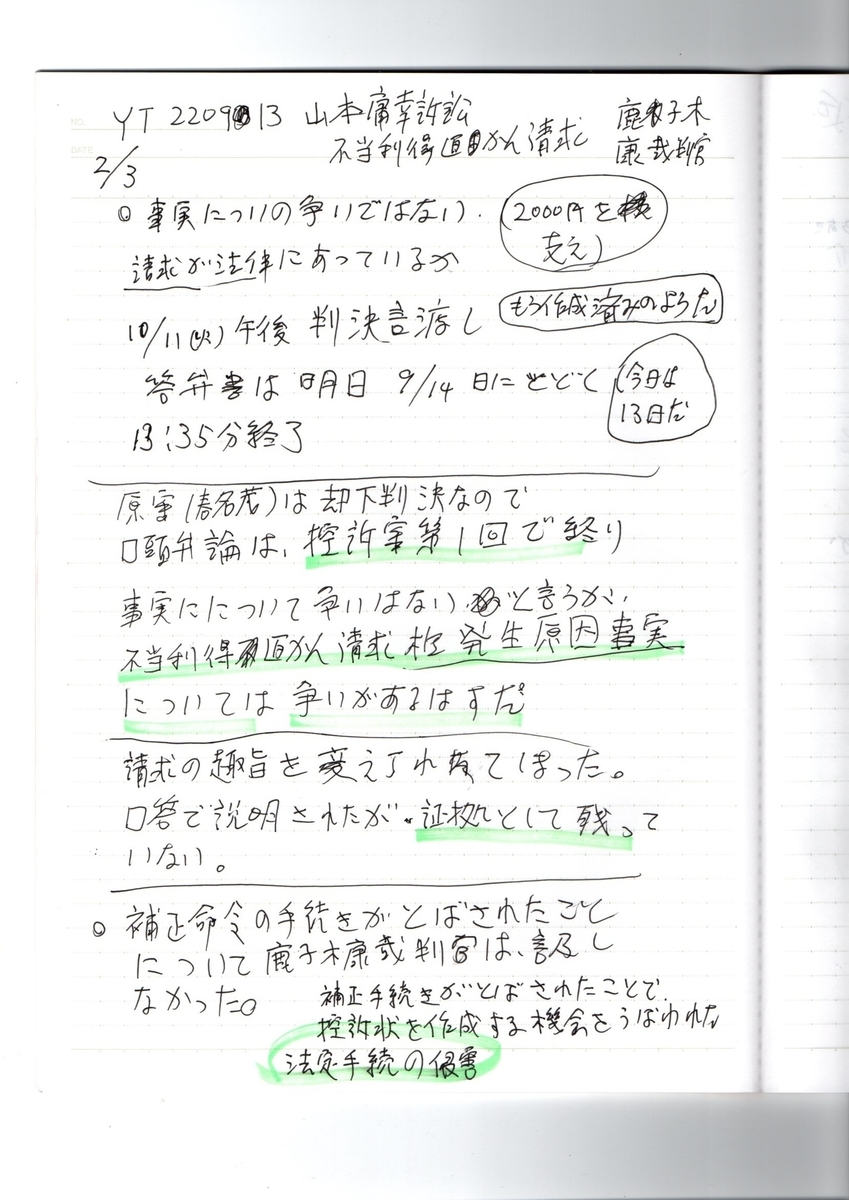 YT 220913 山本庸幸訴訟
不当利得返かん請求
鹿子木
康裁判官
2/3
◎ 事実についの争いではない.
(2000円を
支え)
請求が法律にあっているか
もう作成済みのようだ
10/11(火)午後 判決言渡し
答弁書は 明日 9/14 日にとどく
(今日は
13日だ
13:35分終了
原審(春名茂)は 却下判決なので
口頭弁論は、控訴審第1回で終り
事実にについて争いはない と言うが、
不当利得返かん請求権発生原因事実
については 争いがあるはずだ
請求の趣旨を変え
口答で説明されたが、証拠として残って
いない。
◎ 補正命令の手続きがとばされたこと
について鹿子木康裁判官は、言及し
なかった。
補正手続きがとばされたことで、
控訴状を作成する機会をうばわれた
法定手続の侵害